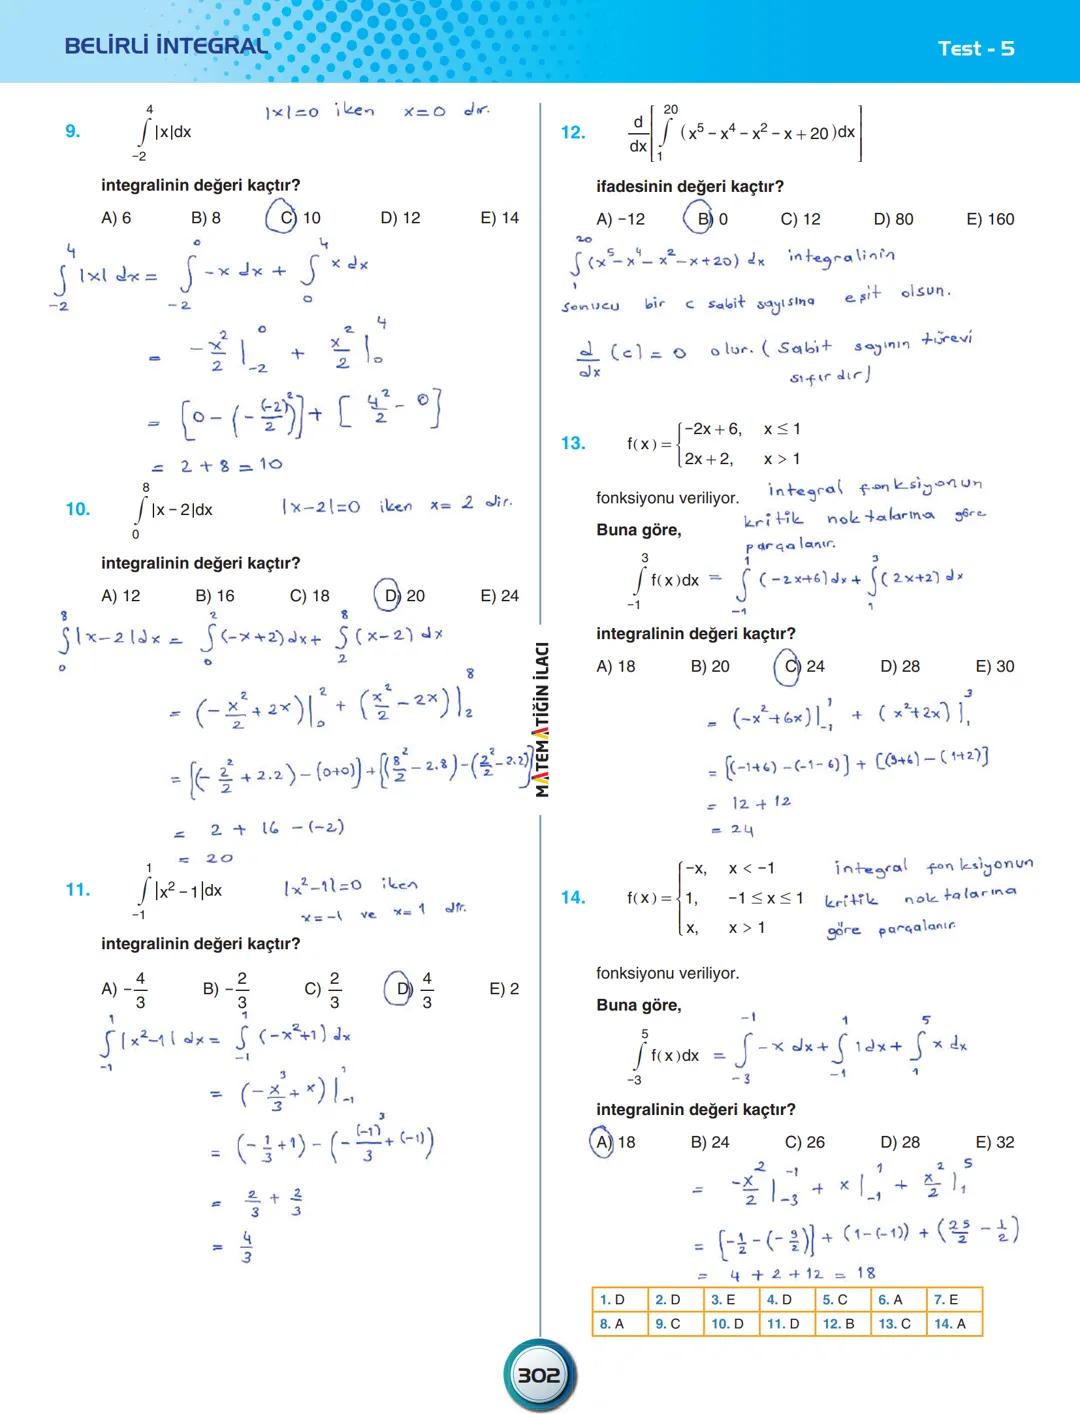 BELİRLİ İNTEGRAL
Test - 5
9. ∫_{-2}^{4} |x|dx
|x|=0 iken x=0 dır.
integralinin değeri kaçtır?
A) 6 B) 8 C) 10 D) 12 E) 14
∫_{-2}^{4} |x| dx = ∫_{-2}^{0} -x dx + ∫_{0}^{4} x dx
= -x²/2 |_{-2}^{0} + x²/2 |_{0}^{4}
= [0-(-(-2)²/2)] + [4²/2 - 0]
= 2+8 = 10
10. ∫_{0}^{8} |x - 2|dx
|x-2|=0 iken x= 2 dir.
integralinin değeri kaçtır?
A) 12 B) 16 C) 18 D) 20 E) 24
∫_{0}^{8} |x-2|dx = ∫_{0}^{2} (-x+2)dx + ∫_{2}^{8} (x-2) dx
= (-x²/2 + 2x)|_{0}^{2} + (x²/2 - 2x)|_{2}^{8}
= [(-2²/2 + 2.2) - (0+0)] + [(8²/2 - 2.8) - (2²/2 - 2.2)]
= 2 + 16 - (-2)
= 20
11. ∫_{-1}^{1} |x² - 1|dx
|x²-1|=0 iken
x=-1 ve x=1 dir.
integralinin değeri kaçtır?
A) -4/3 B) -2/3 C) 2/3 D) 4/3 E) 2
∫_{-1}^{1} |x²-1| dx = ∫_{-1}^{1} (-x²+1) dx
= (-x³/3 + x)|_{-1}^{1}
= (-1/3 + 1) - (-(-1)³/3 + (-1))
= 2/3 + 2/3
= 4/3
MATEMATİĞİN İLACI
12. d/dx [∫_{1}^{20} (x⁵ - x⁴ - x² - x + 20)dx]
ifadesinin değeri kaçtır?
A) -12 B) 0 C) 12 D) 80 E) 160
∫_{1}^{20} (x⁵-x⁴-x²-x+20) dx integralinin
sonucu bir c sabit sayısına eşit olsun.
d/dx (c) = 0 olur. (Sabit sayının türevi
sıfırdır)
13. f(x) = { -2x + 6, x ≤ 1
2x + 2, x > 1
fonksiyonu veriliyor.
integral fonksiyonun
kritik noktalarına göre
parçalanır.
Buna göre,
∫_{-1}^{3} f(x)dx = ∫_{-1}^{1} (-2x+6)dx + ∫_{1}^{3} (2x+2) dx
integralinin değeri kaçtır?
A) 18 B) 20 C) 24 D) 28 E) 30
= (-x²+6x)|_{-1}^{1} + (x²+2x)|_{1}^{3}
= [(-1+6) - (-1-6)] + [(9+6) - (1+2)]
= 12 + 12
= 24
14. f(x) = { -x, x < -1
1, -1 ≤ x ≤ 1
x, x > 1
integral fonksiyonun
kritik noktalarına
göre parçalanır.
fonksiyonu veriliyor.
Buna göre,
∫_{-3}^{5} f(x)dx = ∫_{-3}^{-1} -x dx + ∫_{-1}^{1} 1dx + ∫_{1}^{5} x dx
integralinin değeri kaçtır?
A) 18 B) 24 C) 26 D) 28 E) 32
= -x²/2 |_{-3}^{-1} + x|_{-1}^{1} + x²/2 |_{1}^{5}
= [-1/2 - (-9/2)] + (1-(-1)) + (25/2 - 1/2)
= 4 + 2 + 12 = 18
1. D 2. D 3. E 4. D 5. C 6. A 7. E
8. A 9. C 10. D 11. D 12. B 13. C 14. A
302